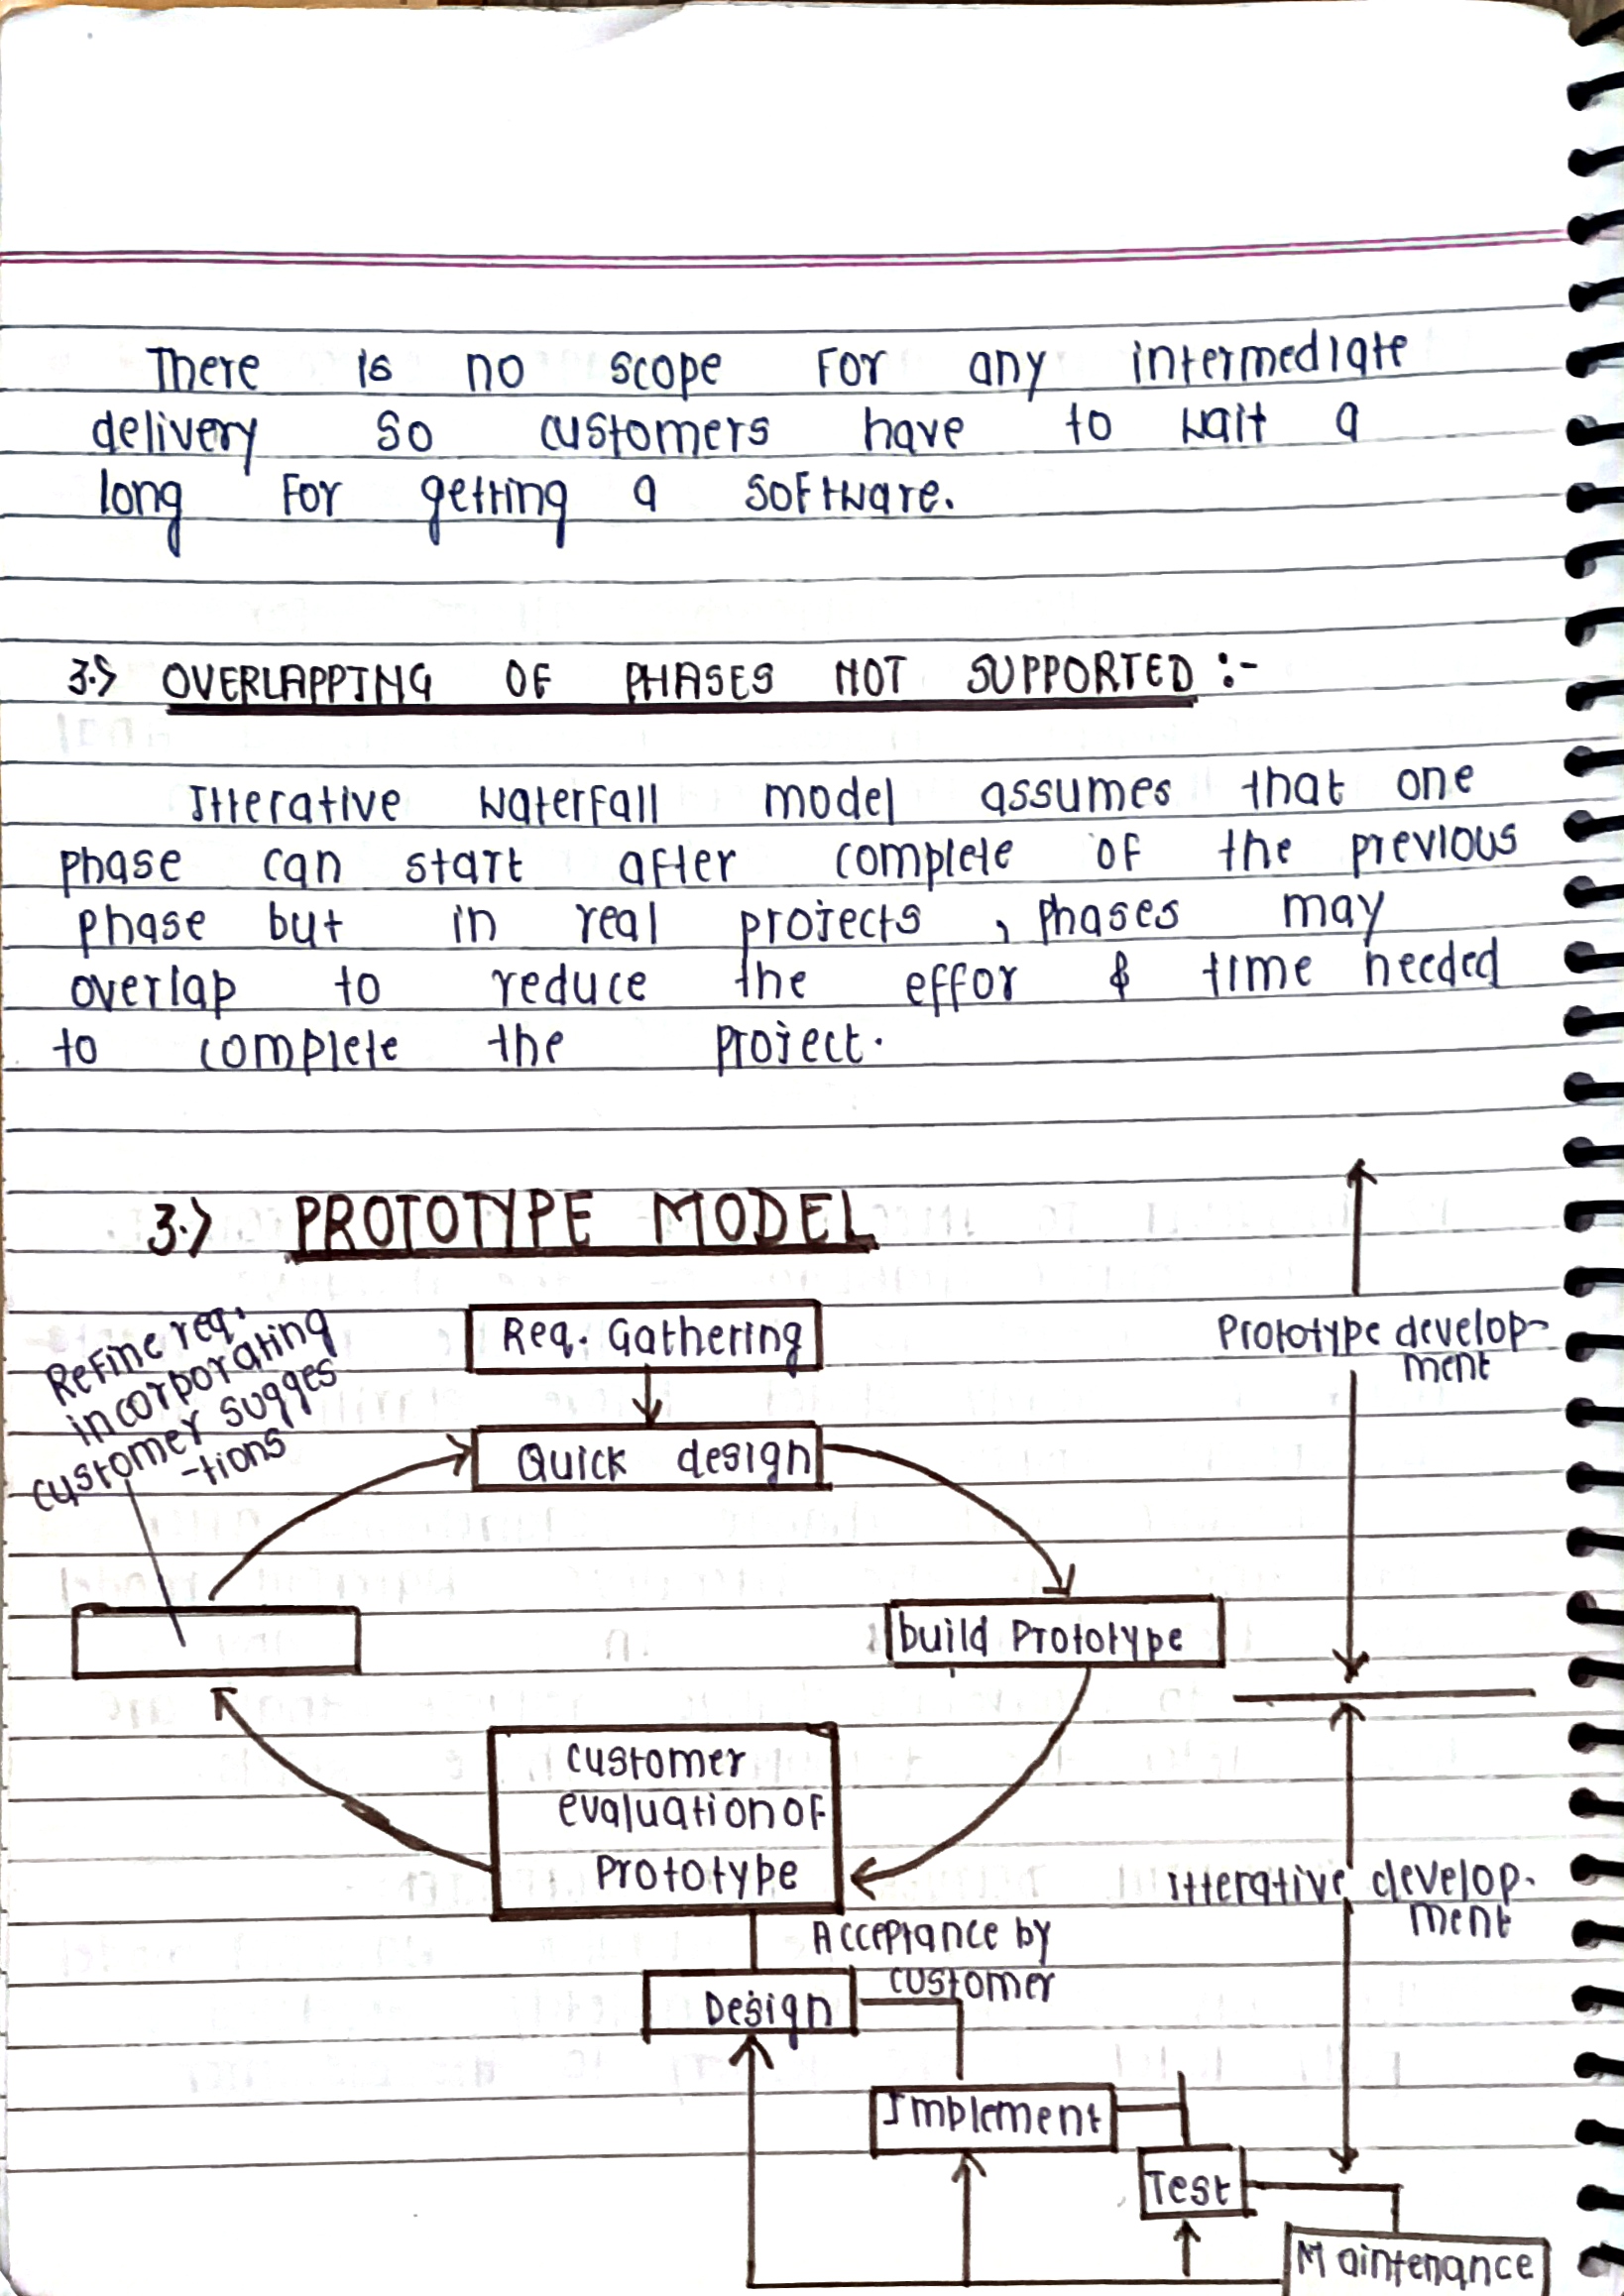 There is no scope For any intermediate
delivery so customers have to wait a
long For getting a software.
3.> OVERLAPPING OF PHASES NOT SUPPORTED :-
Itterative waterfall model assumes that one
phase can start after complete of the previous
phase but in real projects , phases may
overlap to reduce the effor & time needed
to complete the project.
3.> PROTOTYPE MODEL
Refine req.
incorporating
customer sugges
-tions
Req. Gathering
Prototype develop-
ment
Quick design
build Prototype
customer
evaluation of
Prototype
Itterative develop.
ment
Acceptance by
customer
Design
Implement
Test
Maintenance